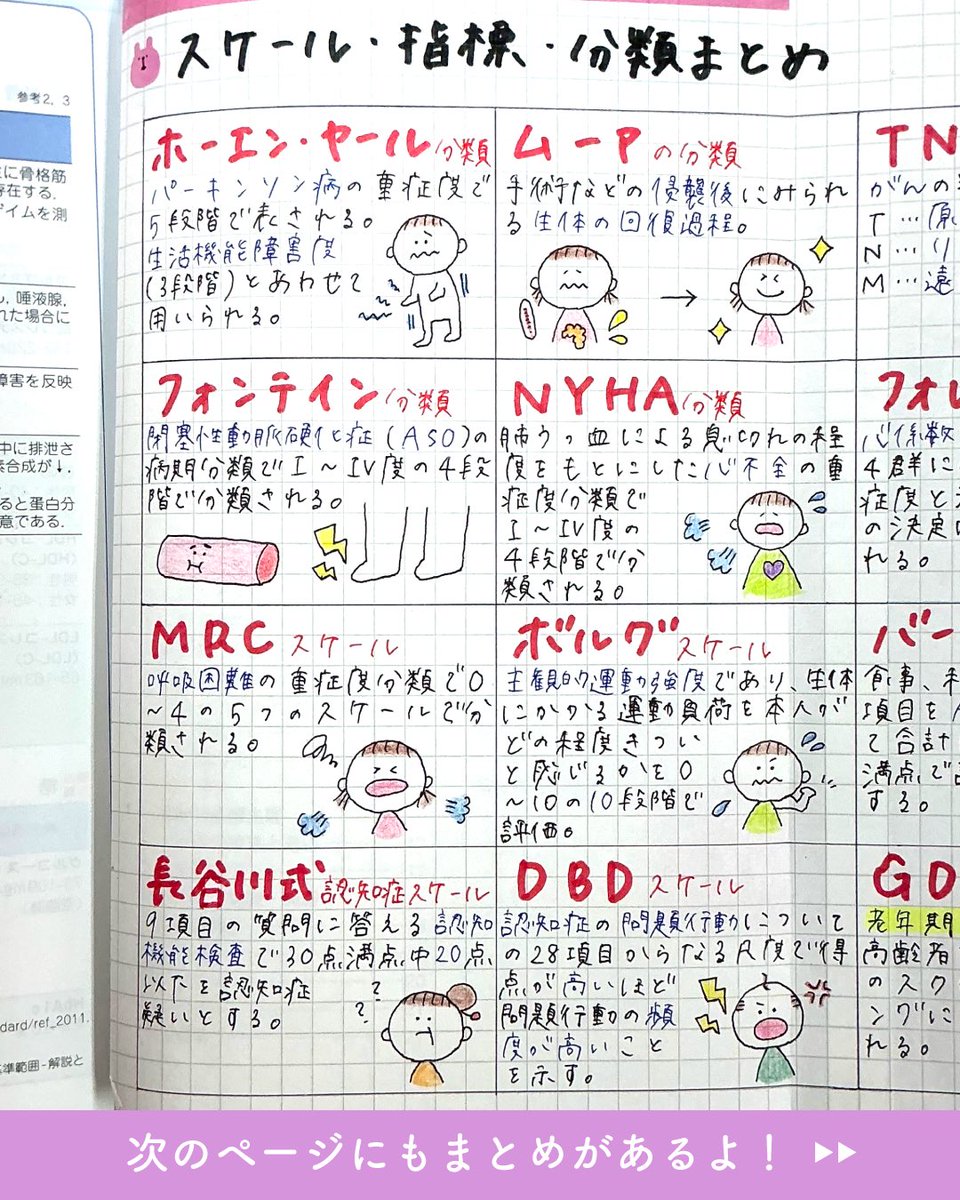 スケール・指標・分類まとめ
参考2, 3
に骨格筋
存在する.
イムを測
, 唾液腺,
れた場合に
障害を反映
中に排泄さ
素合成が↓.
ると蛋白分
意である.
dard/ref_2011.
準範囲-解説と
ホーエン・ヤール分類
パーキンソン病の重症度で
5段階で表される。
生活機能障害度
(3段階)とあわせて
用いられる。
ムーアの分類
手術などの侵襲後にみられ
る生体の回復過程。
TN
がんの
T…原
N…リ
M…遠
フォンテイン分類
閉塞性動脈硬化症(ASO)の
病期分類でI～IV度の4段
階で分類される。
NYHA分類
肺うっ血による息切れの程
度をもとにした心不全の重
症度分類で
I～IV度の
4段階で分
類される。
フォレ
心係数
4群に
症度と
の決定
れる。
MRCスケール
呼吸困難の重症度分類で0
～4の5つのスケールで分
類される。
ボルグスケール
主観的運動強度であり、生体
にかかる運動負荷を本人が
どの程度きつい
と感じるかを0
～10の10段階で
評価。
バー
食事、
項目を
て合計
満点で
する。
長谷川式認知症スケール
9項目の質問に答える認知
機能検査で30点満点中20点
以下を認知症
疑いとする。
? ?
DBDスケール
認知症の問題行動について
の28項目からなる尺度で得
点が高いほど
問題行動の頻
度が高いこと
を示す。
GD
老年期
高齢者
のスク
ングに
れる。
次のページにもまとめがあるよ！